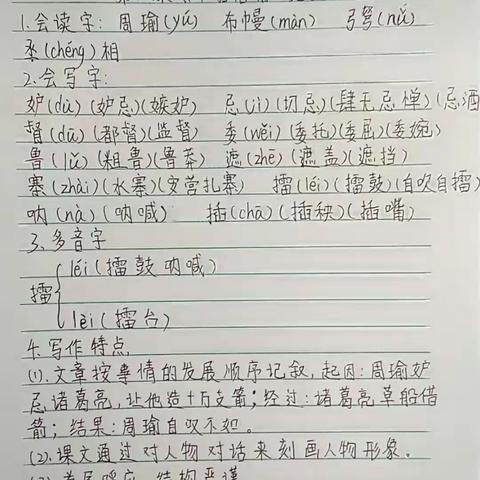 1.会读字: 周瑜(yú) 布幔(màn) 弓弩(nǔ)
丞(chéng)相
2.会写字:
妒(dù)(妒忌)(嫉妒) 忌(jì)(切忌)(肆无忌惮)(忌酒
督(dū)(都督)(监督) 委(wěi)(委托)(委屈)(委婉)
鲁(lǔ)(粗鲁)(鲁莽) 遮(zhē)(遮盖)(遮挡)
寨(zhài)(水寨)(安营扎寨) 擂(léi)(擂鼓)(自吹自擂)
呐(nà)(呐喊) 插(chā)(插秧)(插嘴)
3.多音字
léi(擂鼓呐喊)
擂
lèi(擂台)
4.写作特点
(1).文章按事情的发展顺序记叙,起因:周瑜妒
忌诸葛亮,让他造十万支箭;经过:诸葛亮草船借
箭;结果:周瑜自叹不如。
(2).课文通过对人物对话来刻画人物形象。
首尾呼应,结构严谨